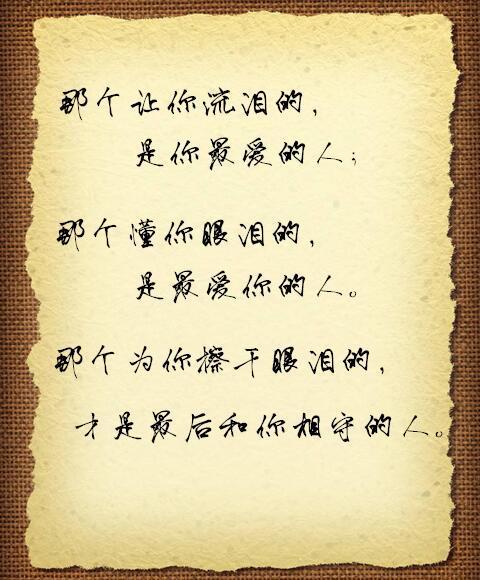 那个让你流泪的，
是你最爱的人；
那个懂你眼泪的，
是最爱你的人。
那个为你擦干眼泪的，
才是最后和你相守的人。